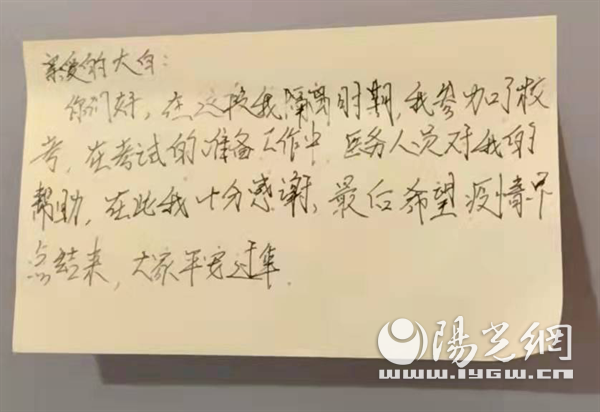 亲爱的大白：
你们好，在这段我隔离时期，我参加了校
考，在考试的准备工作中，医务人员对我的
帮助，在此我十分感谢，最后希望疫情早
点结束，大家平安过年.
陽光網
www.iygw.cn